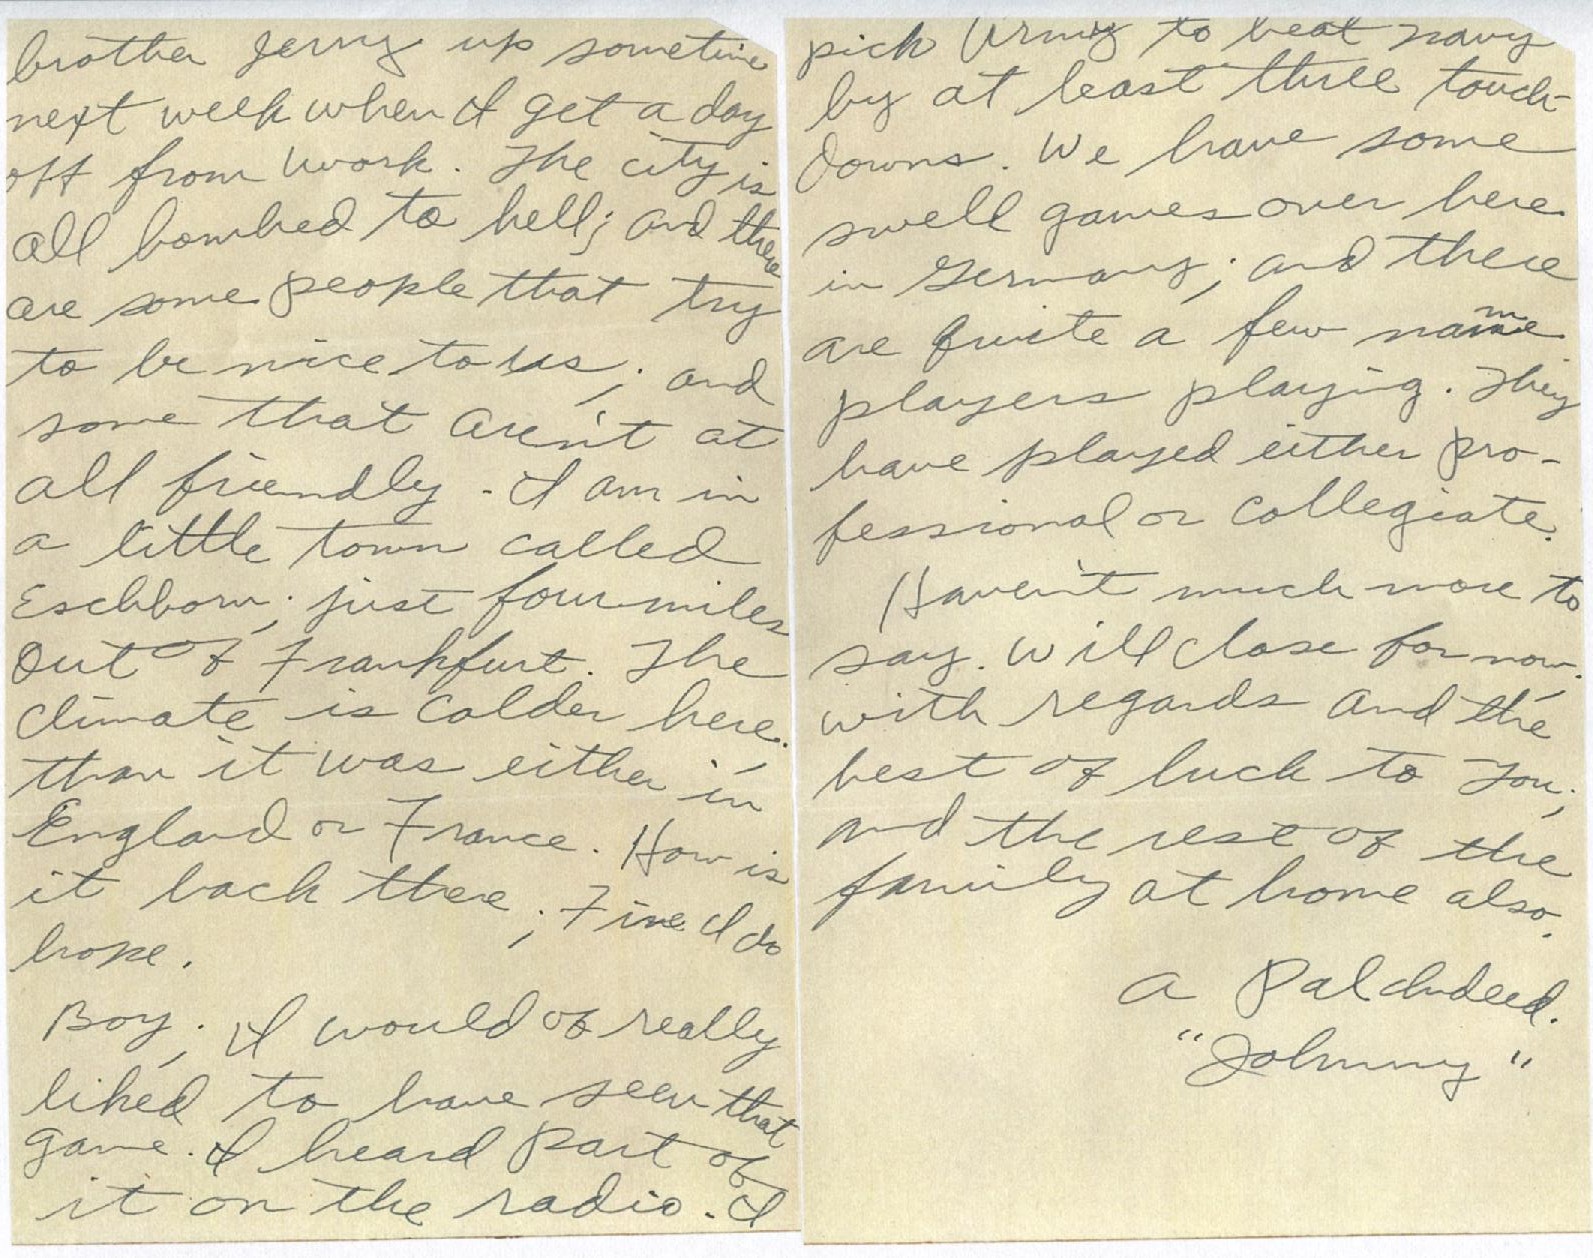 brother Jerry up sometime
next week when I get a day
off from work. The city is
all bombed to hell; and there
are some people that try
to be nice to us; and
some that aren't at
all friendly. I am in
a little town called
Eschborn; just four miles
out of Frankfurt. The
climate is colder here;
than it was either in
England or France. How is
it back there; Fine I do
hope.
Boy; I would of really
liked to have seen that
game. I heard part of
it on the radio. I
pick Army to beat Navy
by at least three touch-
downs. We have some
swell games over here
in Germany; and there
are quite a few name
players playing. They
have played either pro-
fessional or collegiate.
Haven't much more to
say. Will close for now;
with regards and the
best of luck to you;
and the rest of the
family at home also.
A Pal Indeed.
"Johnny"